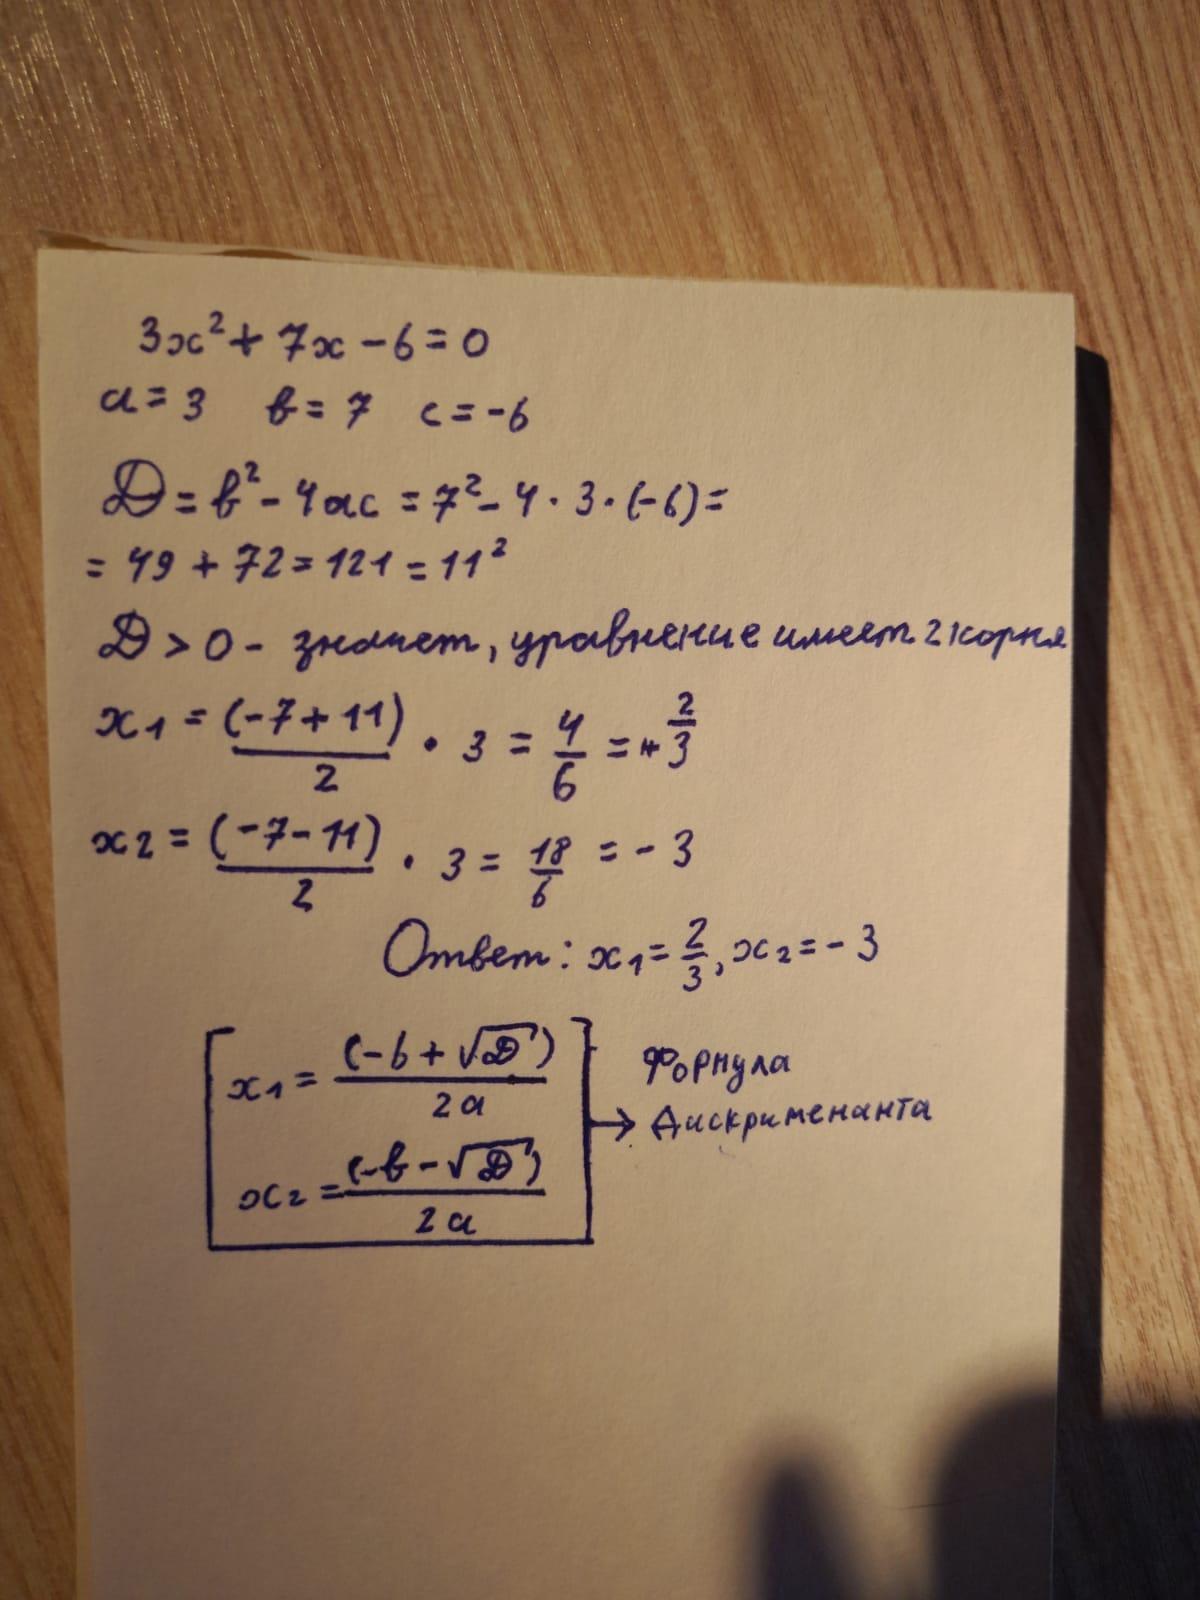 3x² + 7x - 6 = 0
a = 3 в = 7 c = -6
D = в² - 4ac = 7² - 4 · 3 · (-6) =
= 49 + 72 = 121 = 11²
D > 0 - значет, уравнение имеет 2 корня
x₁ = (-7 + 11)/2 · 3 = 4/6 = 2/3
x₂ = (-7 - 11)/2 · 3 = 18/6 = - 3
Ответ: x₁ = 2/3, x₂ = - 3
x₁ = (-b + √D)/2a
x₂ = (-в - √D)/2a
→ Формула
Дискрименанта